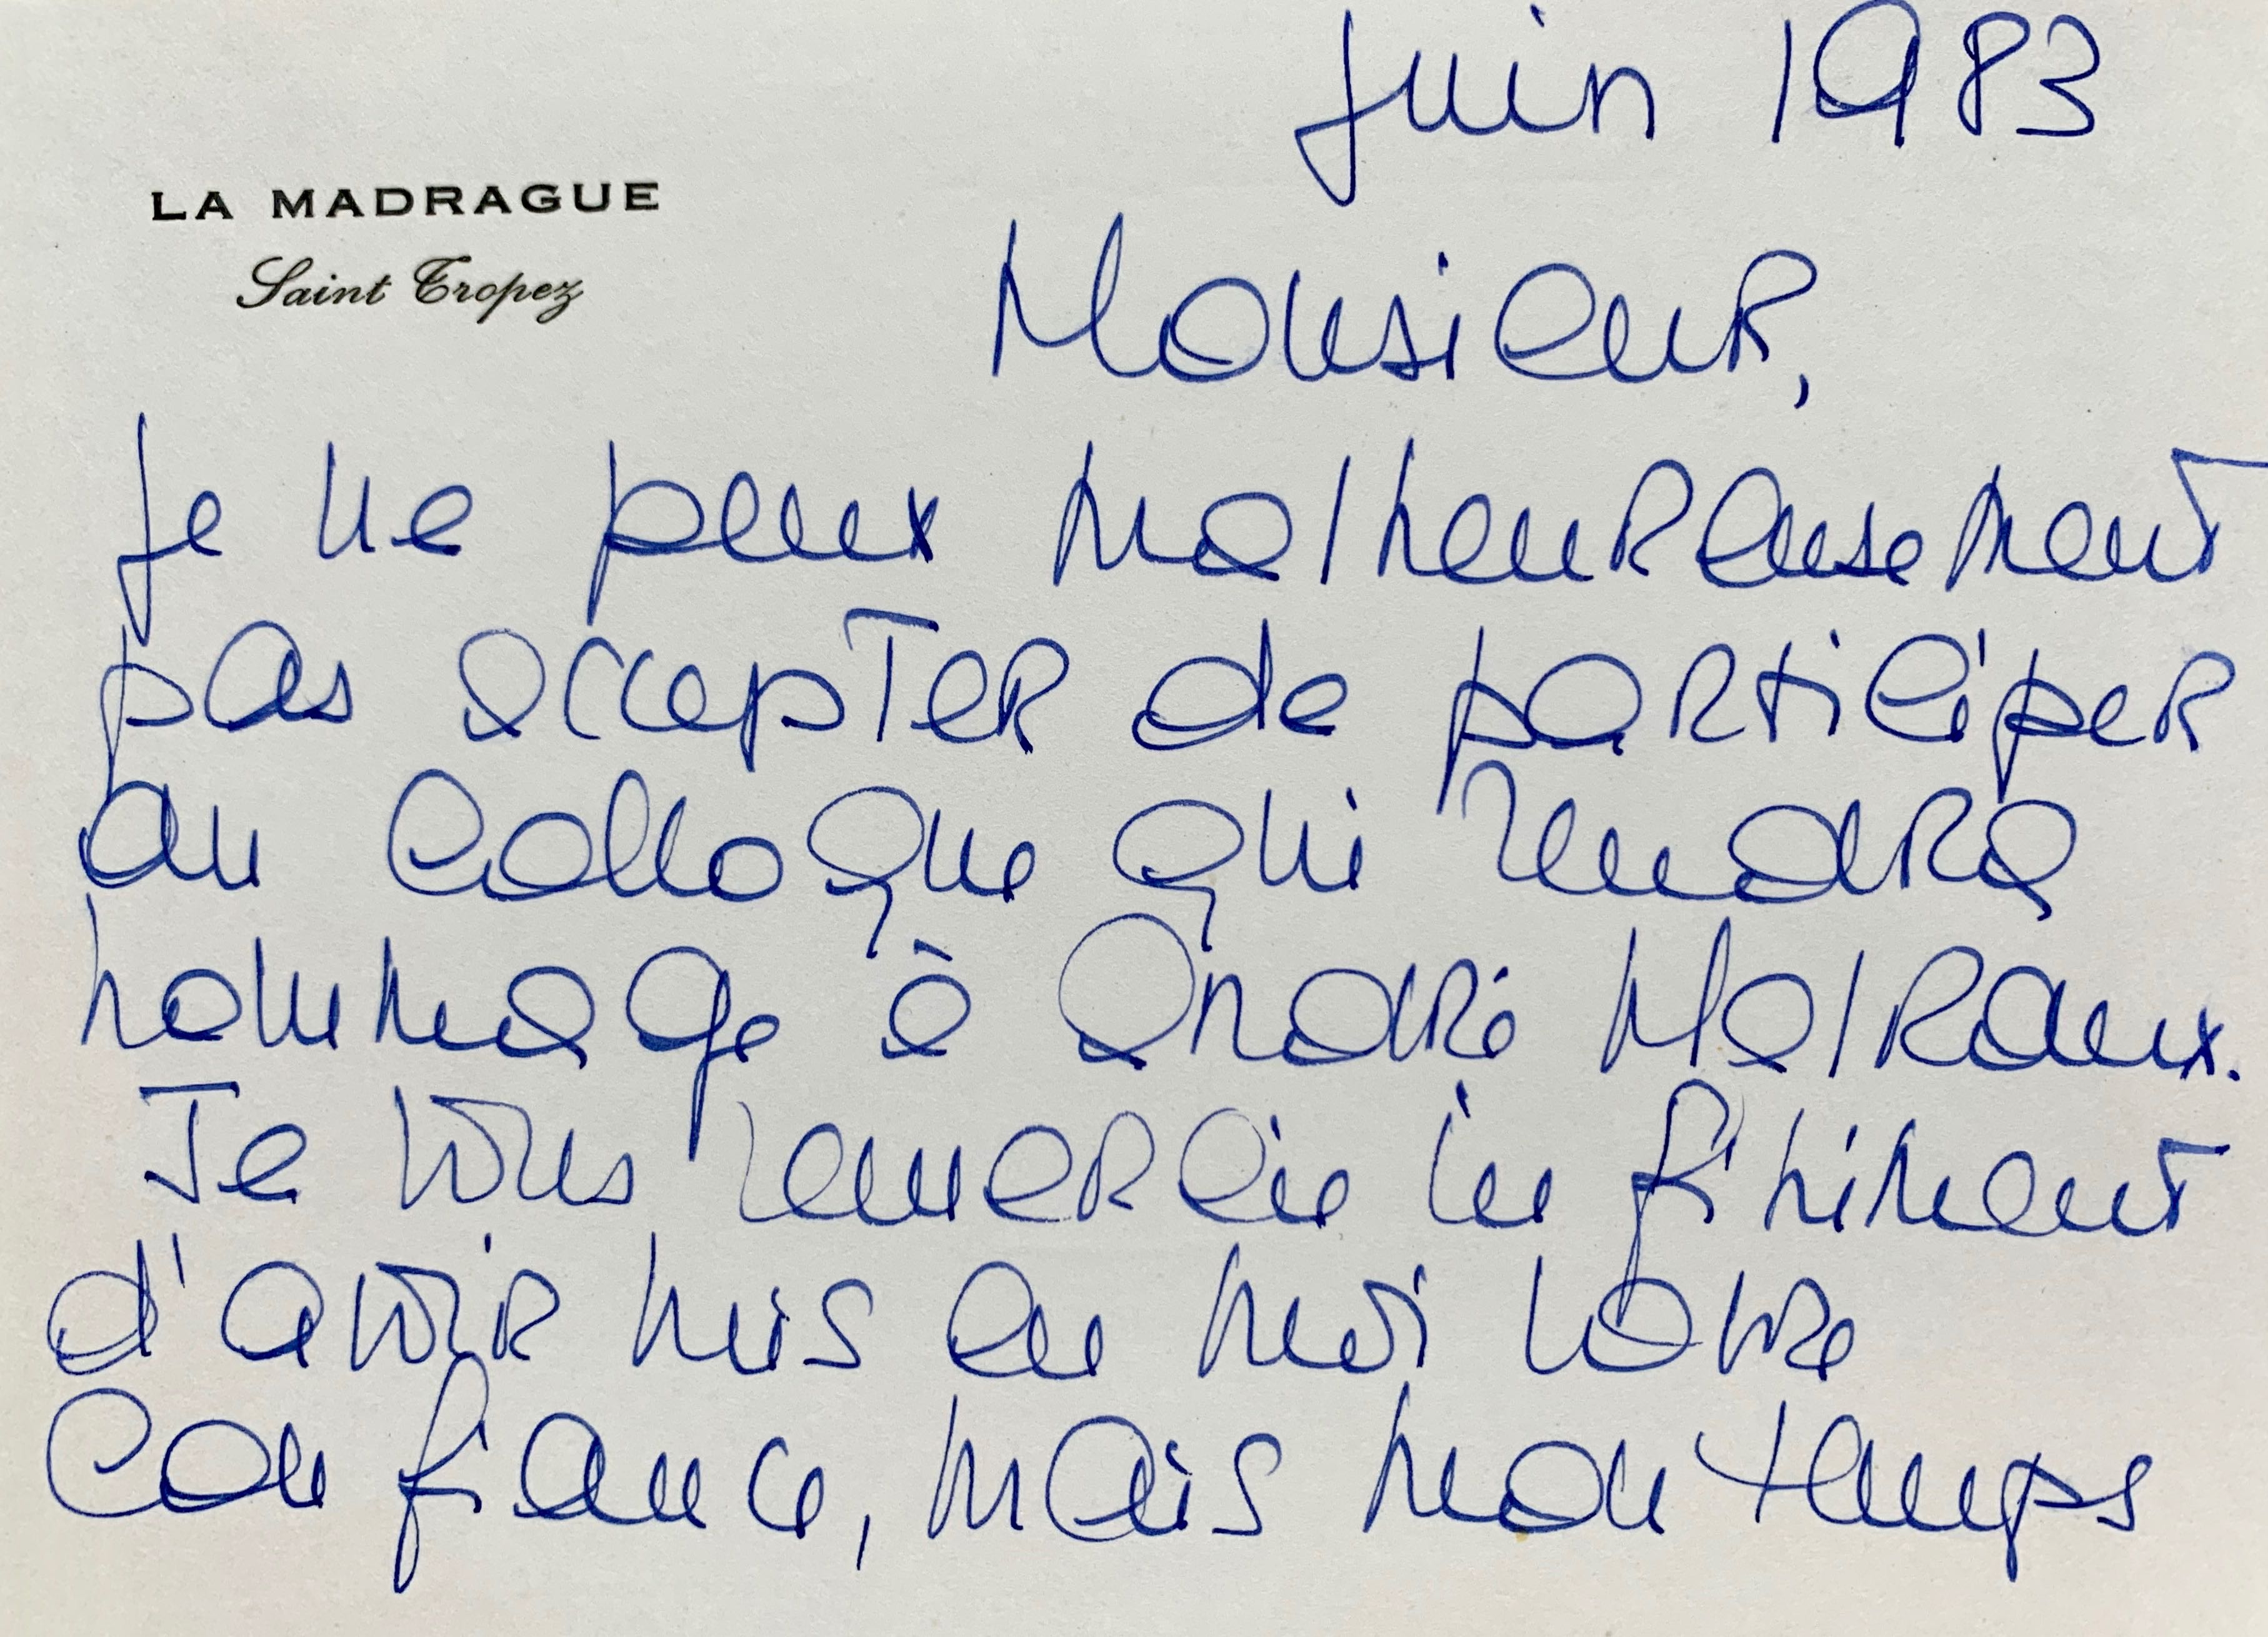 Juin 1983
LA MADRAGUE
Saint Tropez
Monsieur,
Je ne peux malheureusement
pas accepter de participer
au colloque qui rendra
hommage à André Malraux.
Je vous remercie infiniment
d'avoir mis en moi votre
confiance, mais mon temps